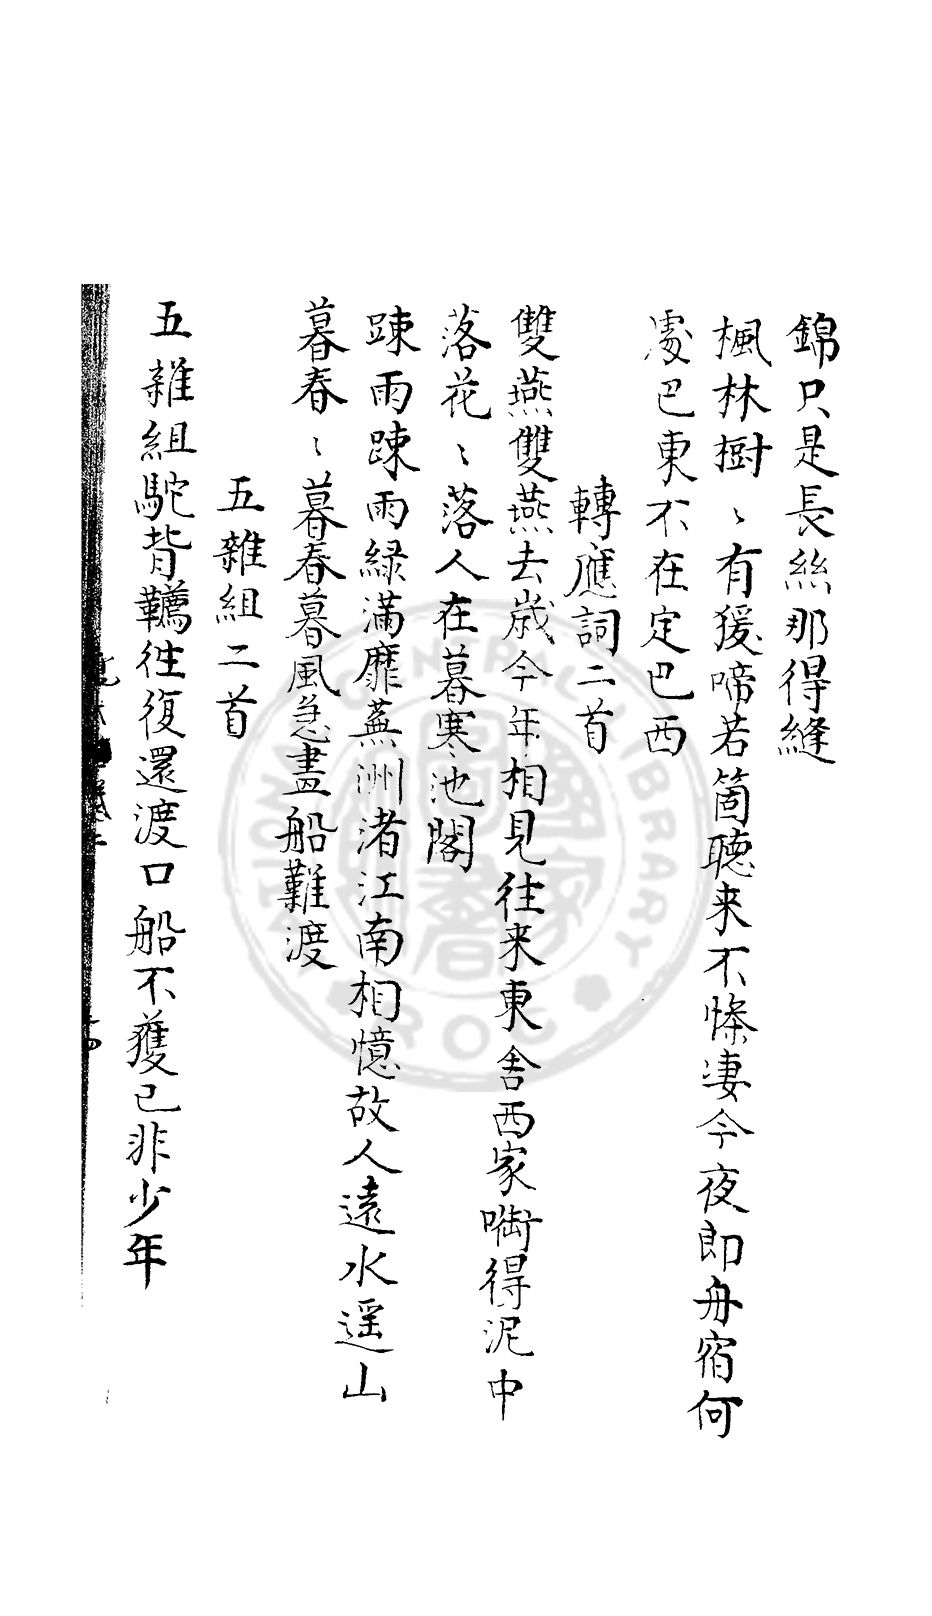 錦只是長絲那得縫
楓林樹〻有猨啼若箇聽来不慘凄今夜即舟宿何
處巴東不在定巴西
轉應詞二首
雙燕雙燕去歲今年相見往来東舍西家啣得泥中
落花〻落人在暮寒池閣
踈雨踈雨緑滿蘼蕪洲渚江南相憶故人遠水遥山
暮春〻暮春暮風急盡船難渡
五雜組二首
五雜組駝背韉往復還渡口船不獲已非少年
NATIONAL CENTRAL LIBRARY
R.O.C